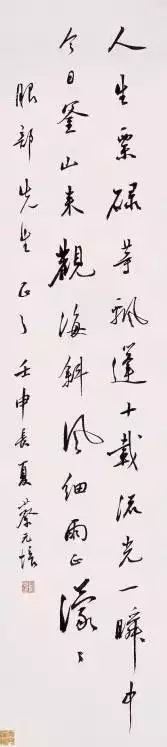 人生栗碌等飘蓬十载流光一瞬中
今日釜山来觀海斜风细雨正濛々
服部先生正之 壬申長夏蔡元培